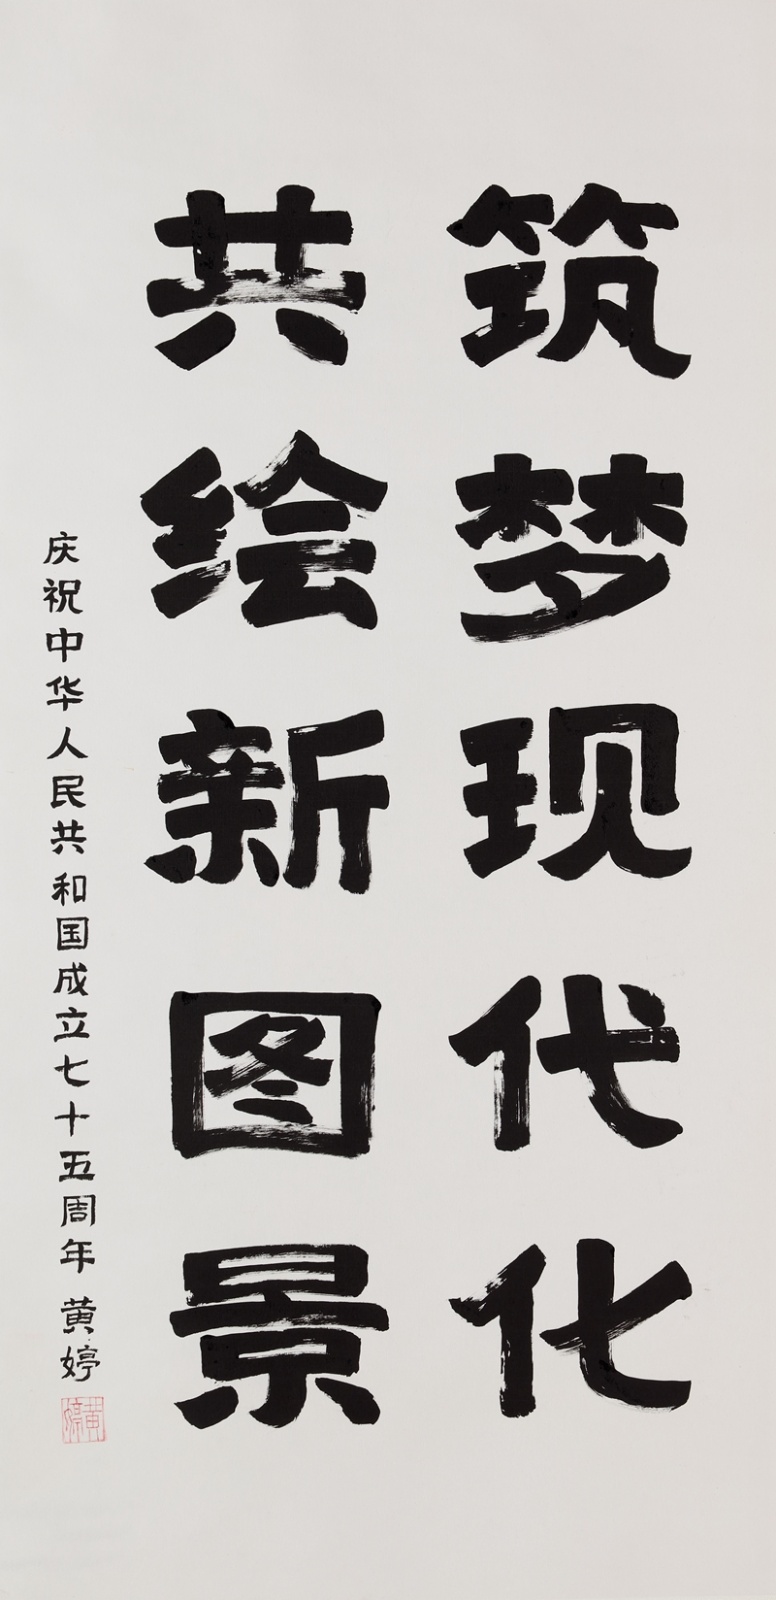 筑梦现代化
共绘新图景
庆祝中华人民共和国成立七十五周年 黄婷
黄婷